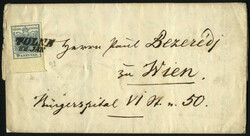 TOLNA
Herrn Paul Bezerédj
zu Wien.
Bürgerspital VI St. n. 50.